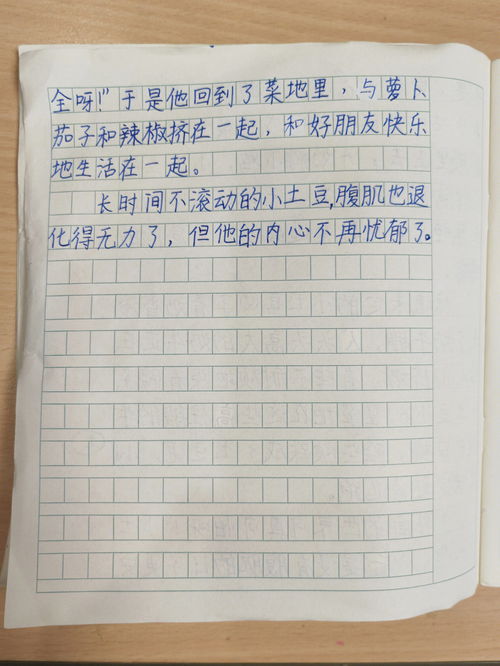 全呀!"于是他回到了菜地里，与萝卜、
茄子和辣椒挤在一起，和好朋友快乐
地生活在一起。
长时间不滚动的小土豆,腹肌也退
化得无力了，但他的内心不再忧郁了。